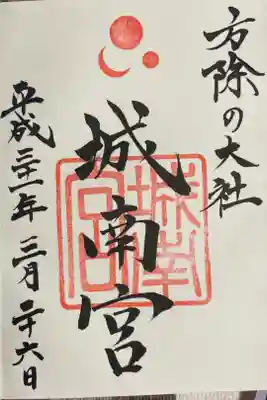 方除の大社
城南宮
城南宮
平成三十一年三月二十六日